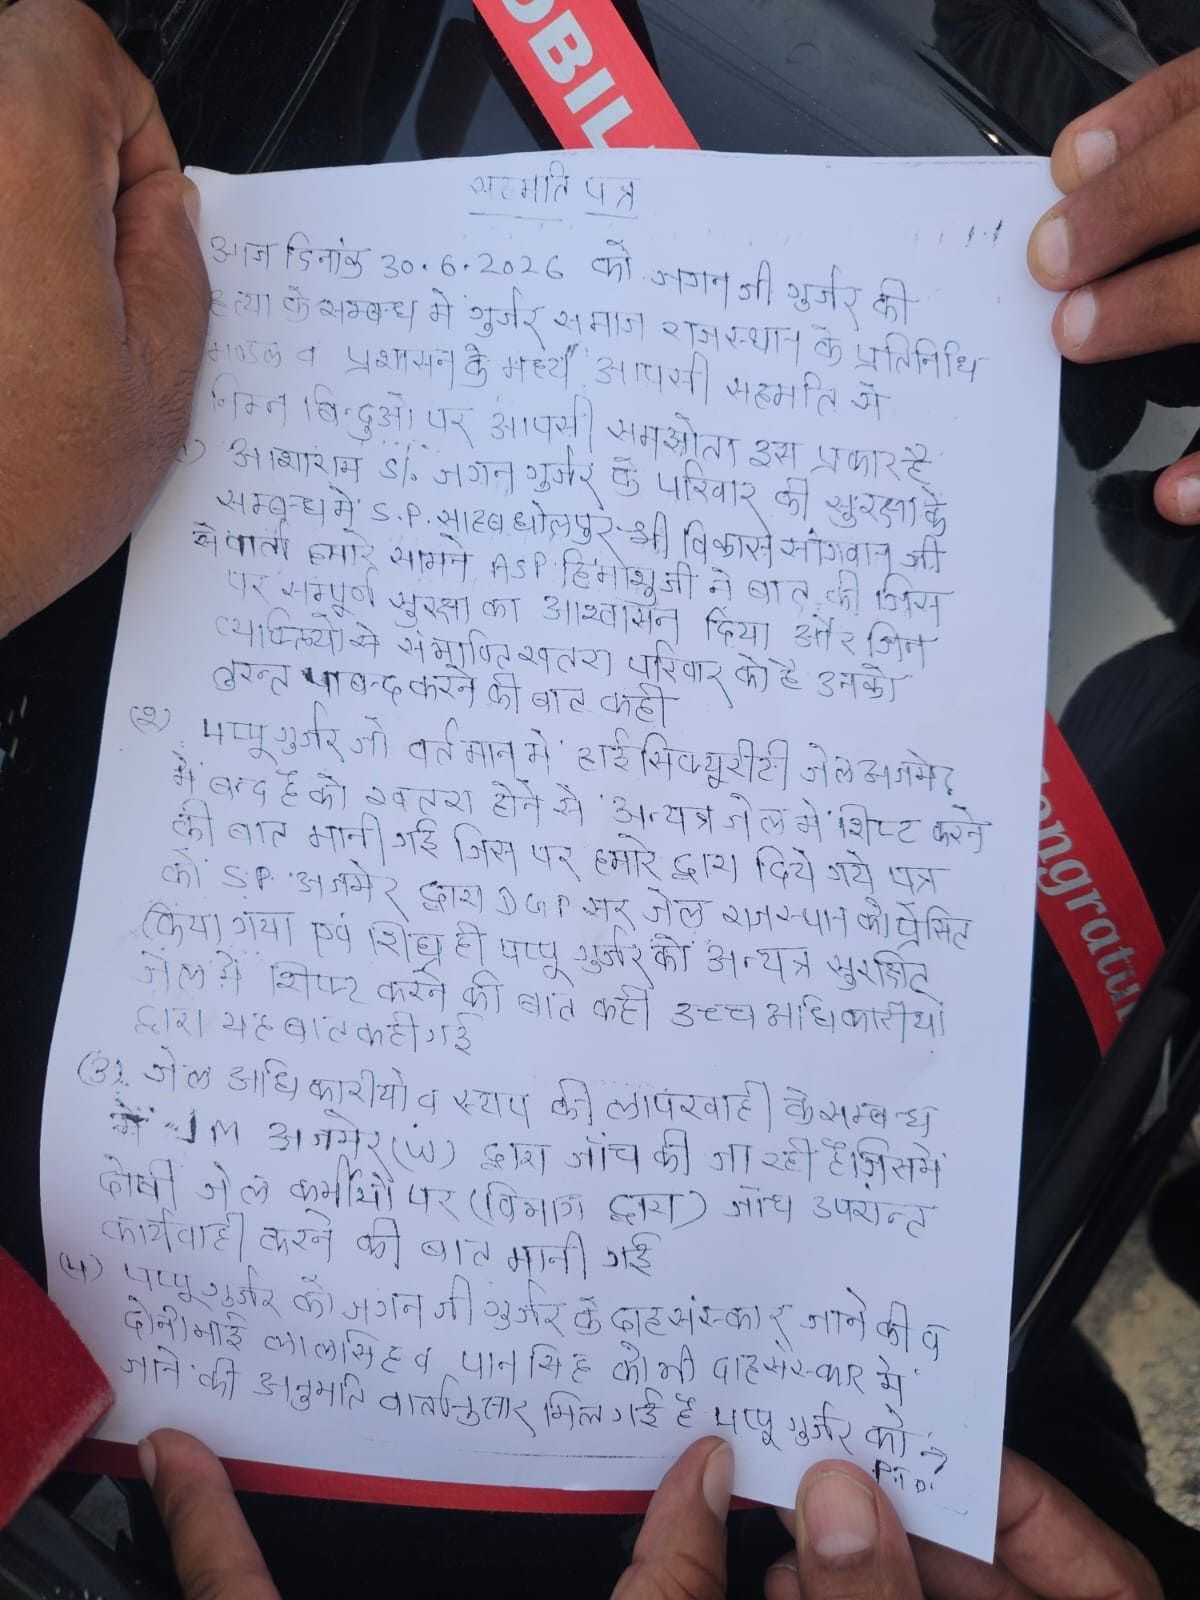 OBIL
सहमति पत्र
आज दिनांक 30.6.2026 को जगन जी गुर्जर की
हत्या के सम्बन्ध में गुर्जर समाज राजस्थान के प्रतिनिधि
मण्डल व प्रशासन के मध्य आपसी सहमति से
निम्न बिन्दुओं पर आपसी समझोता इस प्रकार है
आशाराम S/. जगन गुर्जर के परिवार की सुरक्षा के
सम्बन्ध में S.P. साहब धोलपुर श्री विकास सांगवान जी
से वार्ता हमारे सामने ASP हिमांशु जी ने बात की जिस
पर सम्पूर्ण सुरक्षा का आश्वासन दिया और जिन
व्यक्तियों से संभावित खतरा परिवार को है उनको
तुरन्त पाबन्द करने की बात कही
(2) पप्पू गुर्जर जो वर्तमान में हाई सिक्यूरीटी जेल अजमेर
में बन्द है को खतरा होने से अन्यत्र जेल में शिप्ट करने
की बात मानी गई जिस पर हमारे द्वारा दिये गये पत्र
को S.P. अजमेर द्वारा DGP सर जेल राजस्थान को प्रेसित
किया गया एवं शिघ्र ही पप्पू गुर्जर को अन्यत्र सुरक्षित
जेल में शिप्ट करने की बात कही उच्च अधिकारीयो
द्वारा यह बात कही गई
(3) जेल अधिकारीयो व स्टाप की लापरवाही के सम्बन्ध
में JM अजमेर द्वारा जाँच की जा रही है जिसमें
दोषी जेल कर्मीयों पर (विभाग द्वारा) जाँच उपरान्त
कार्यवाही करने की बात मानी गई
(4) पप्पू गुर्जर को जगन जी गुर्जर के दाह संस्कार जाने की व
दोनो भाई लालसिह व पान सिह को भी दाह संस्कार में
जाने की अनुमति वार्तानुसार मिल गई है पप्पू गुर्जर को
P.T.O.
Congratul